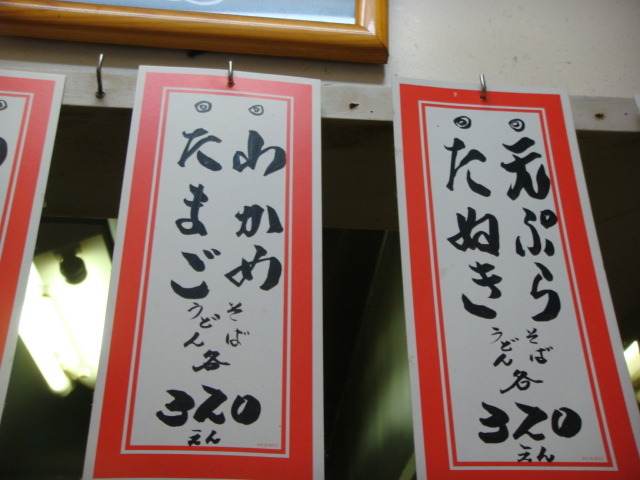 わかめ
たまご
そば
うどん
各
320
えん
天ぷら
たぬき
そば
うどん
各
320
えん